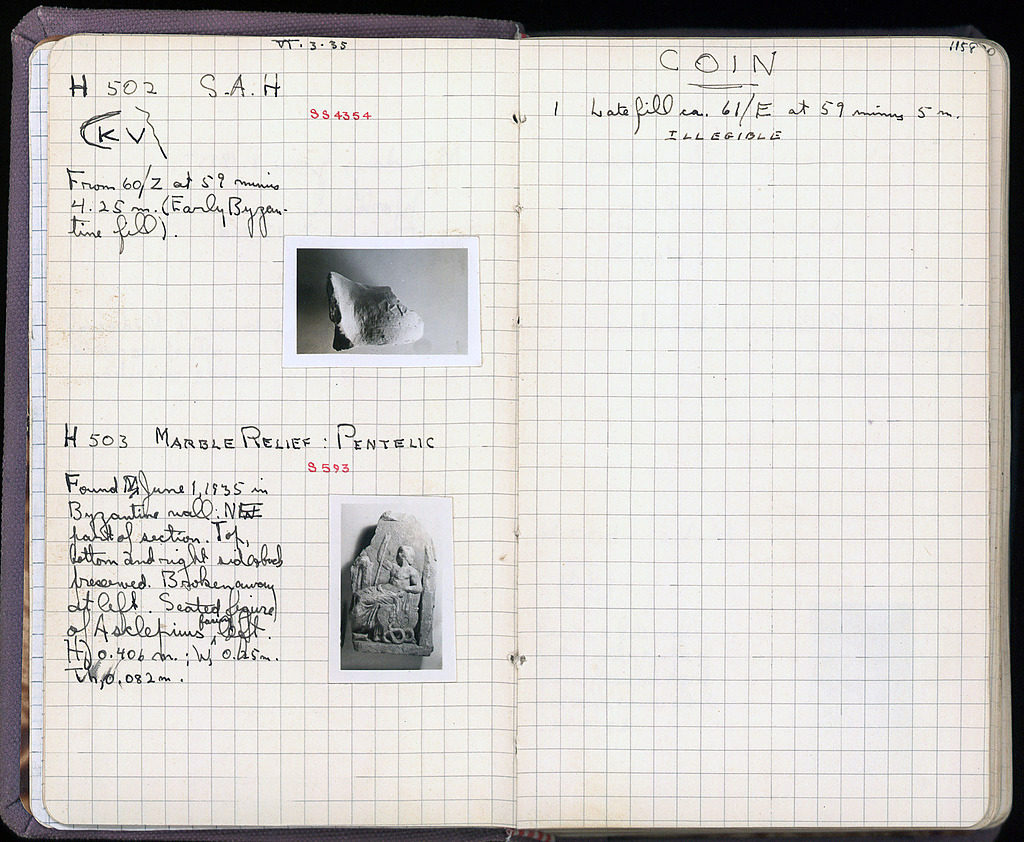 VI·3·35
H 502 S.A.H
SS 4354
KV
From 60/Z at 59 minus
4.25 m. (Early Byzan-
tine fill).
H 503 MARBLE RELIEF : PENTELIC
S 593
Found June 1, 1935 in
Byzantine wall: N
part of section. Top,
bottom and right side
preserved. Broken away
at left. Seated figure
of Asclepius, facing left.
H, 0.406 m.; W, m.
Th, 0.082 m.
1159
COIN
1 Late fill ca. 61/E at 59 minus 5 m.
ILLEGIBLE